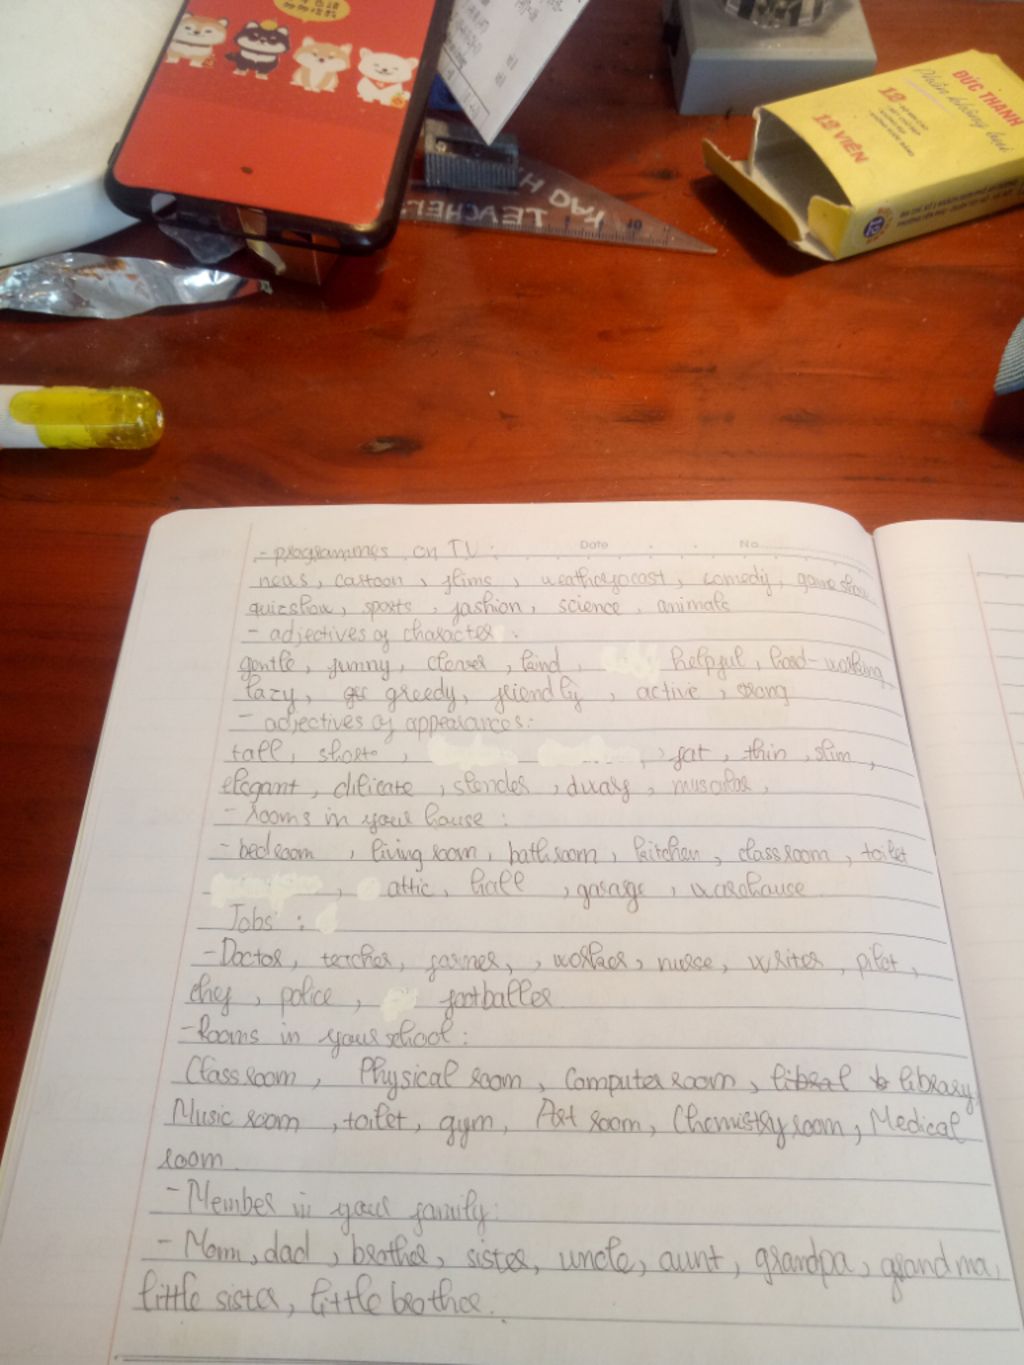 ĐỨC THANH
Phấn không bụi
12
12 VIÊN
TEACHER
10
Date No
- programmes on TV :
neas, cartoon, films, weatherjocast, comedy, game show
quizshow, sports, fashion, science, animals
- adjectives of character :
gentle, funny, clener, kind, helpful, hard-working
lazy, greedy, friendly, active, srong
- adjectives of appearances:
tall, shorte, fat, thin, slim,
elegant, dilicate, slender, dwarf,
- rooms in your house :
- bedroom, living room, bathroom, kitchen, classroom, toilet
attic, hall, garage, warehouse
Jobs :
- Doctor, teacher, farmer, worker, nurse, writer, pilot,
chef, police, footballer
- Rooms in your school :
Classroom, Physical room, Computer room, libral library
Music room, toilet, gym, Art room, Chemistry room, Medical
room.
- Member in your family:
- Mom, dad, brother, sister, uncle, aunt, grandpa, grandma,
little sister, little brother.